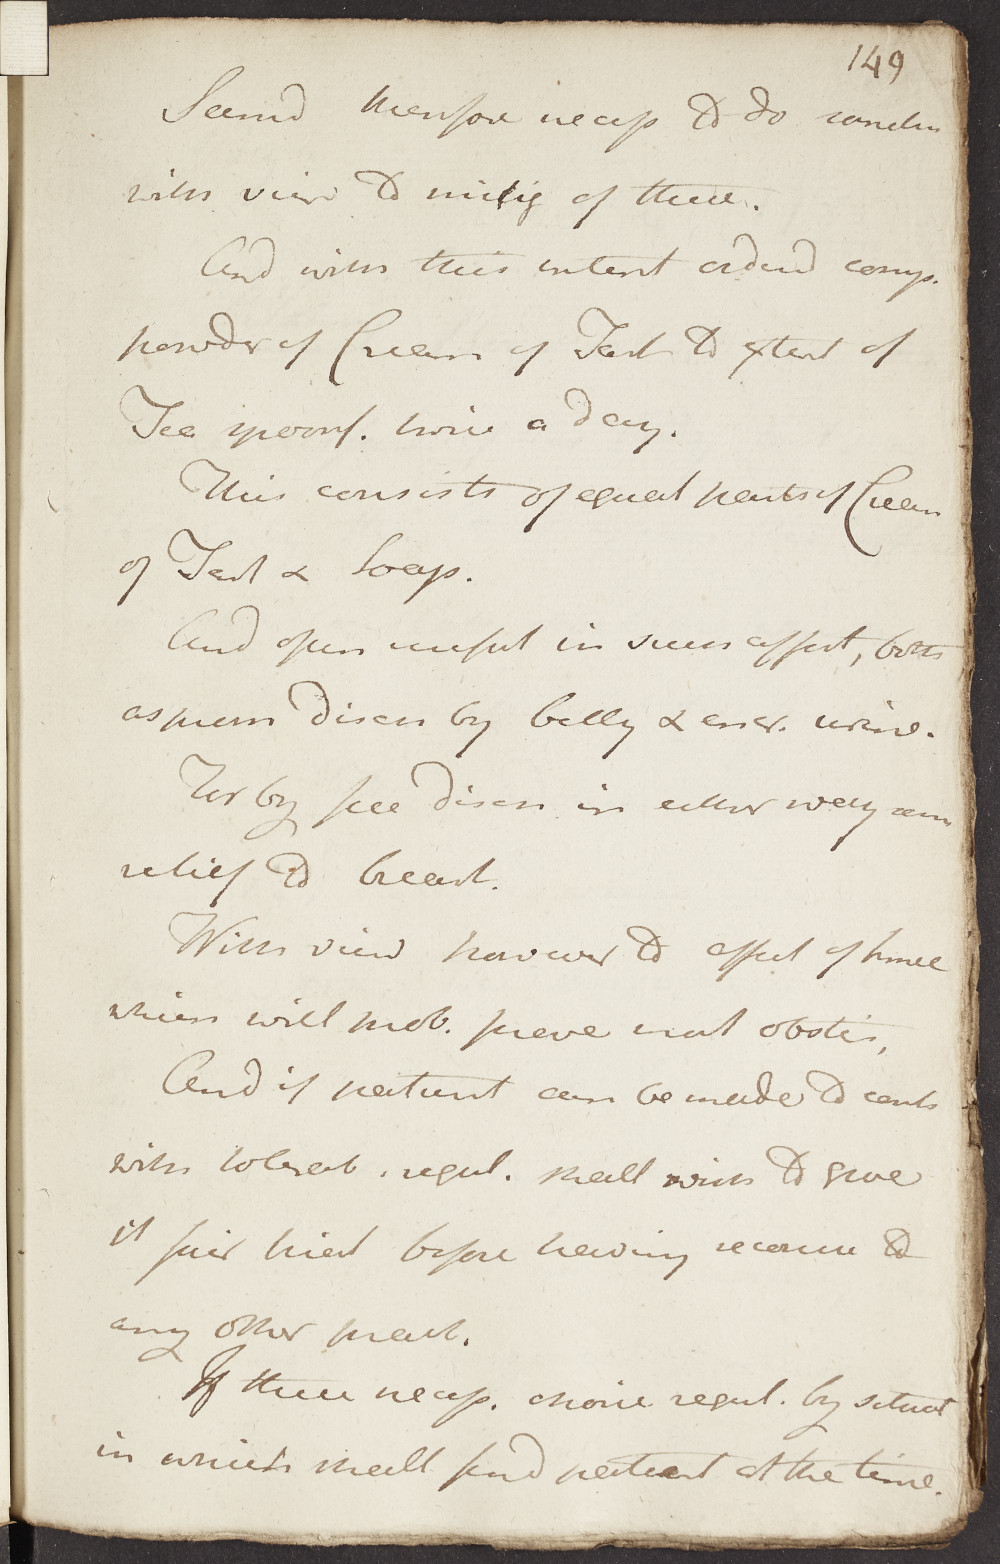 149
Seemd therefore necess to do somethin
with view to mitig of these.
And with this intent orderd comp.
powder of Cream of Tart to extent of
Tea spoonf. twice a day.
This consists of equal parts of Cream
of Tart &
And often useful in such affect, both
as prom disch by belly & encr. urine.
by free disch in either way
relief to breast.
With view however to effect of these
which will prob. prove most obstin,
And if patient can be made to
with tolerab. regul. shall wish to give
it fair trial before having recourse to
any other pract.
If these necess. choice regul. by situat
in which shall find patient at the time.